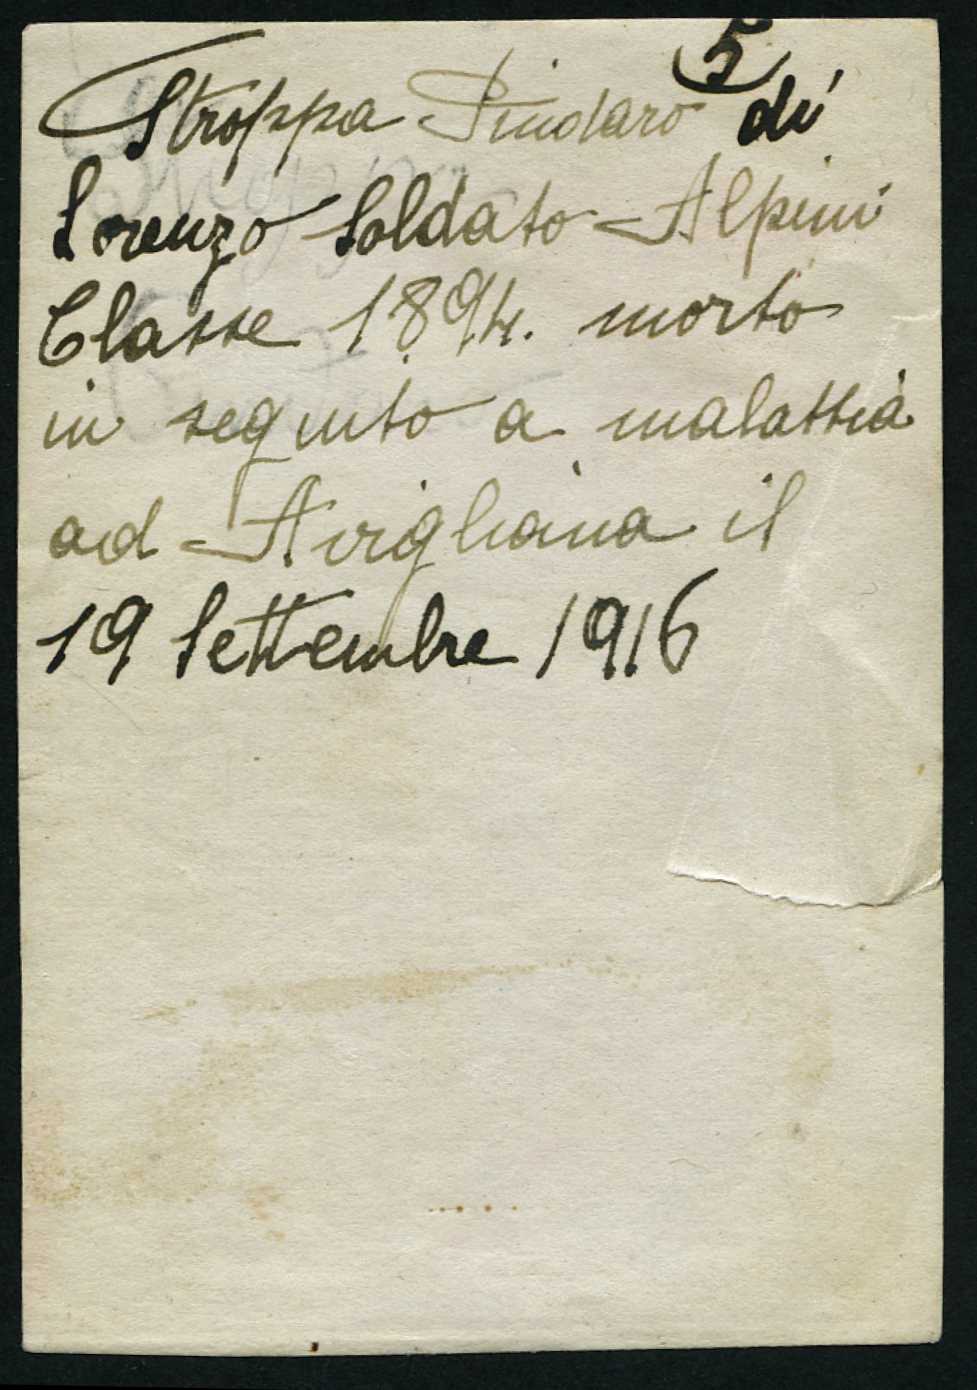 5
Stroppa Pindaro di
Lorenzo Soldato Alpini
Classe 1894. morto
in seguito a malattia
ad Avigliana il
19 Settembre 1916